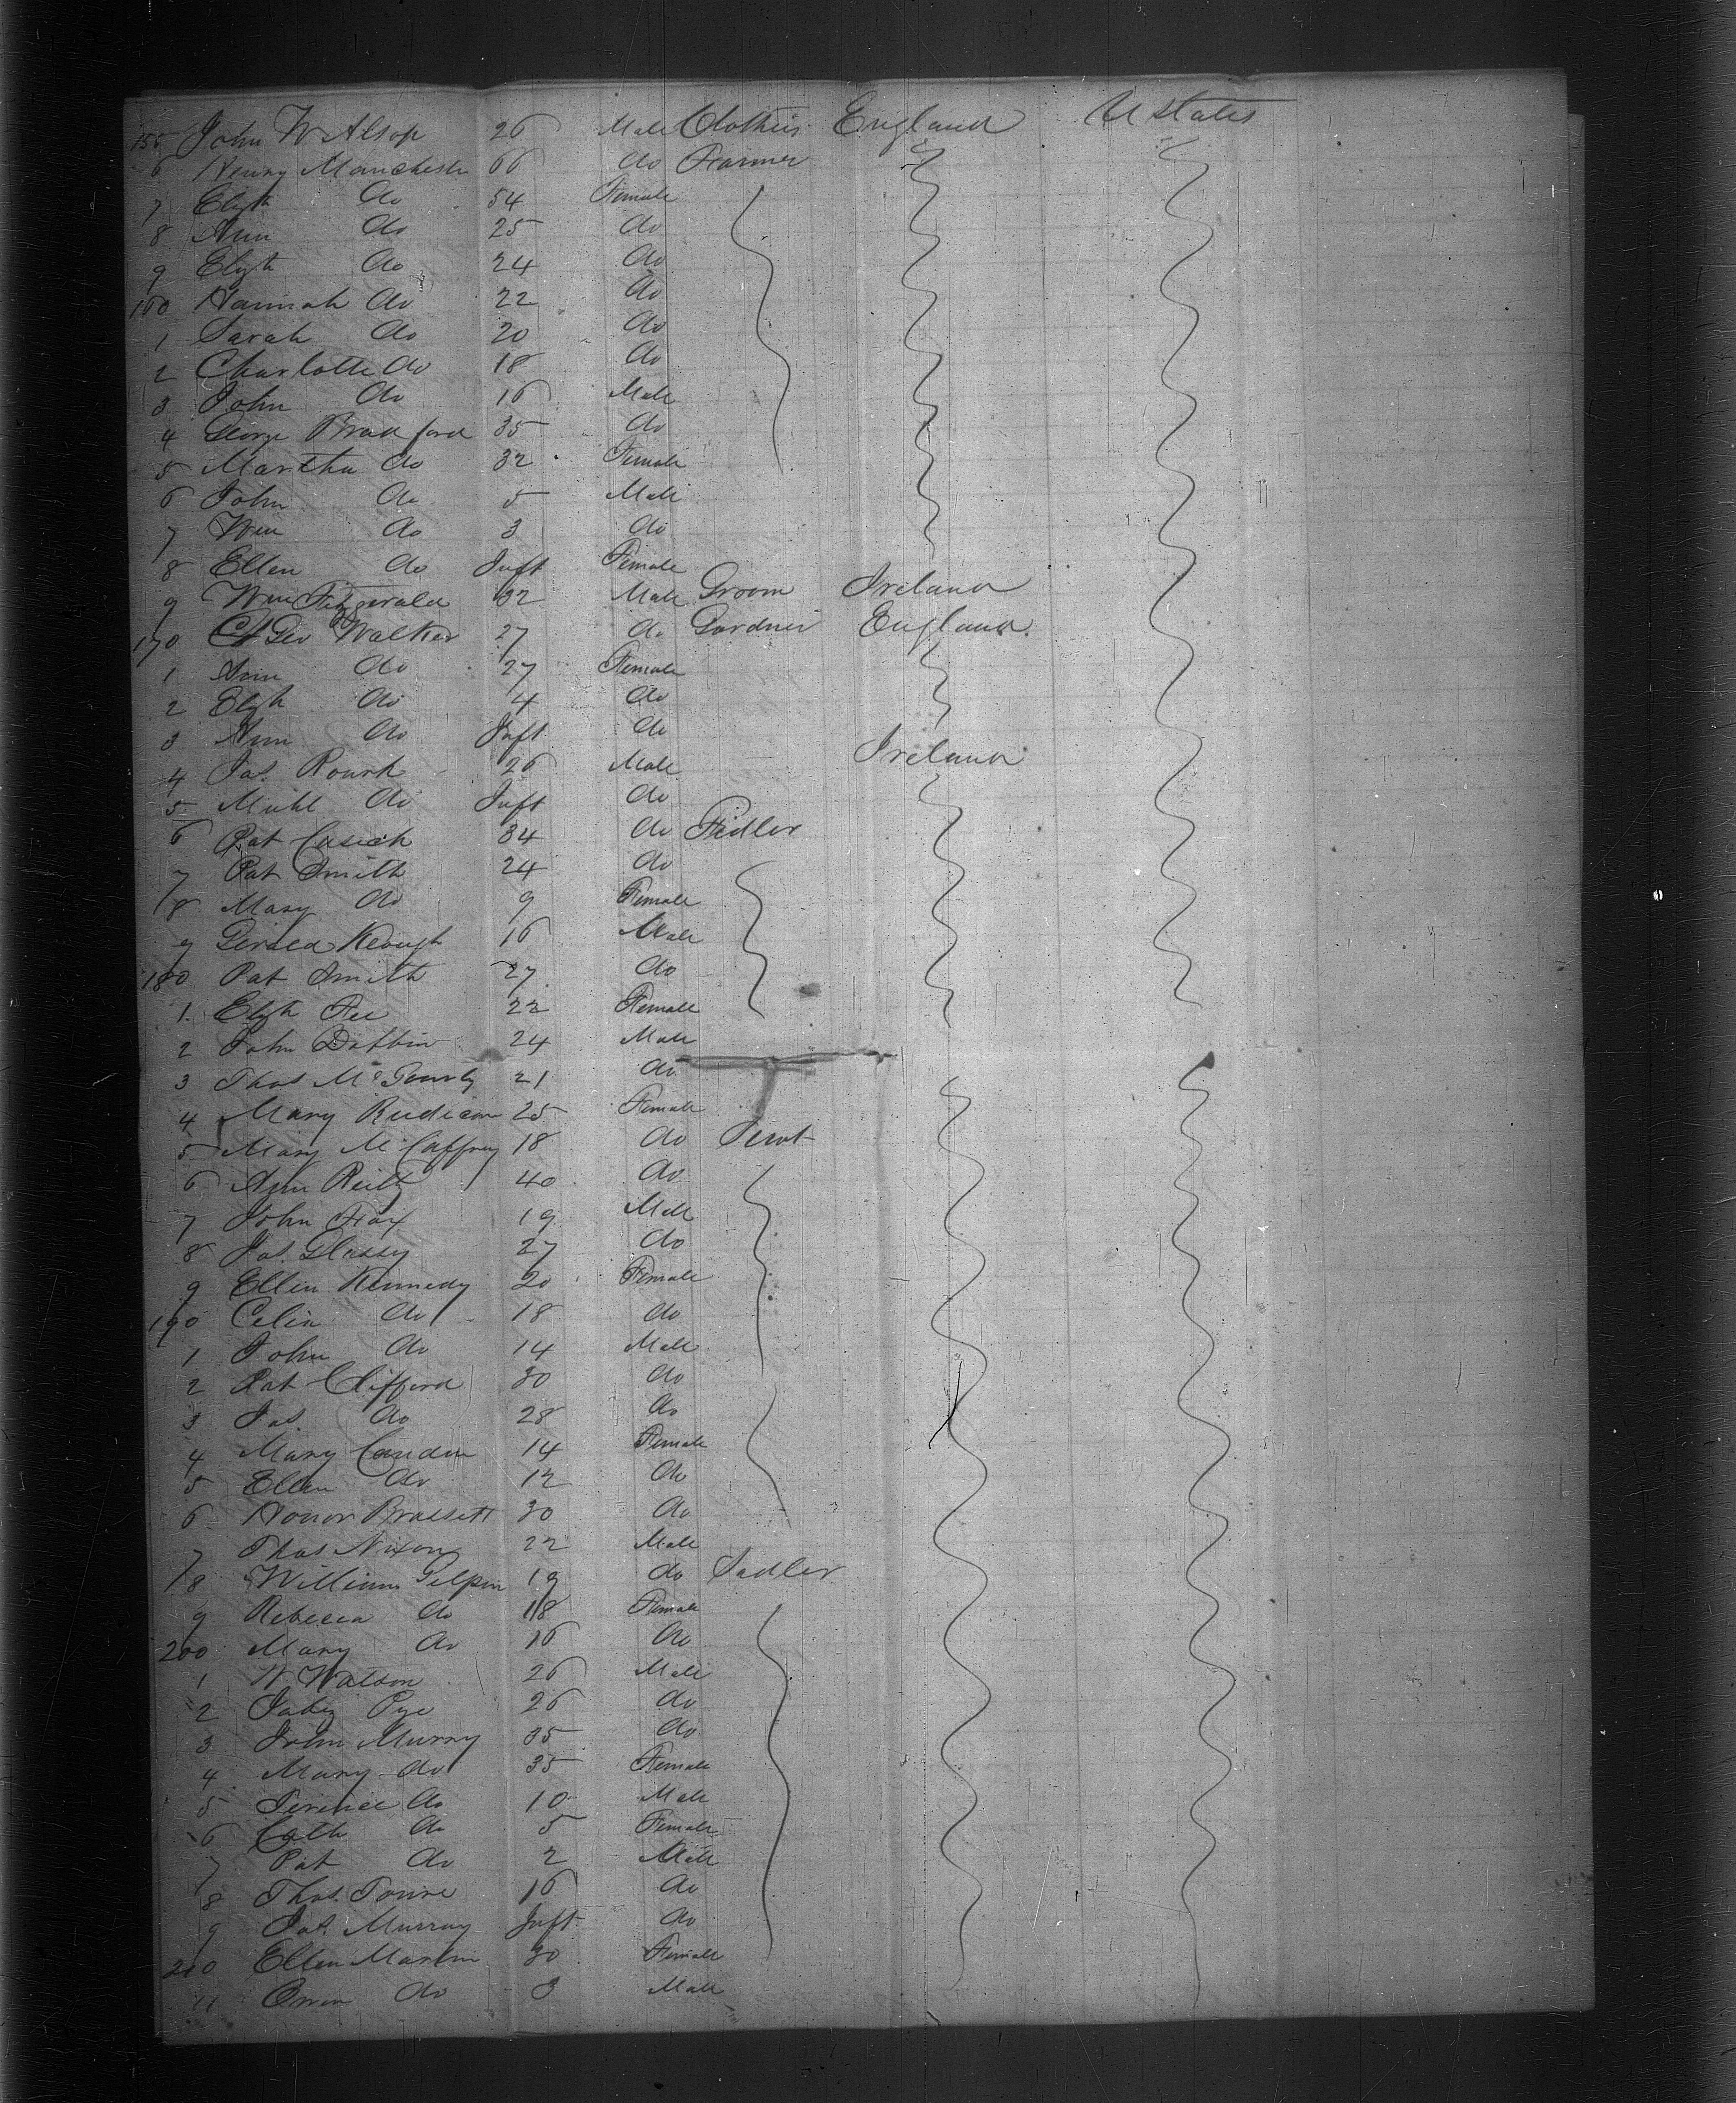 155 John W Alsop 26 Male Clothier England U States
6 Henry Manchester 66 do Farmer
7 Elizth do 54 Female
8 Ann do 25 do
9 Elizth do 24 do
160 Hannah do 22 do
1 Sarah do 20 do
2 Charlotte do 18 do
3 John do 16 Male
4 George Bradford 35 do
5 Martha do 32 Female
6 John do 5 Male
7 Wm do 3 do
8 Ellen do Inft Female
9 Wm Fitzgerald 32 Male Groom Ireland
170 Geo Walker 27 do Gardner England
1 Ann do 27 Female
2 Elizh do 4 do
3 Ann do Inft do
4 Jas. Rourk 26 Male Ireland
5 Michl do Inft do
6 Pat Cusick 34 do
7 Pat Smith 24 do
8 Mary do 9 Female
9 Keough 16 Male
180 Pat Smith 27 do
1 Elizh Fee 22 Female
2 John 24 Male
3 Thos 21 do
4 Mary 25 Female
5 Mary McCaffrey 18 do Servt
6 Ann Reilly 40 do
7 John Fox 19 Male
8 Jas. Glassy 27 do
9 Ellen Kennedy 20 Female
190 Celia do 18 do
1 John do 14 Male
2 Pat Clifford 30 do
3 Jas. do 28 do
4 Mary 14 Female
5 Ellen do 12 do
6 Honor 30 do
7 Thos Nixon 22 Male
8 William Gilpin 19 do Sadler
9 Rebecca do 18 Female
200 Mary do 16 do
1 W Watson 26 Male
2 Jabez Pye 26 do
3 John Murry 35 do
4 Mary do 35 Female
5 Terence do 10 Male
6 Cath do 5 Female
7 Pat do 2 Male
8 Thos. 16 do
9 Murray Inft do
210 Ellen Martin 30 Female
11 Owen do 3 Male